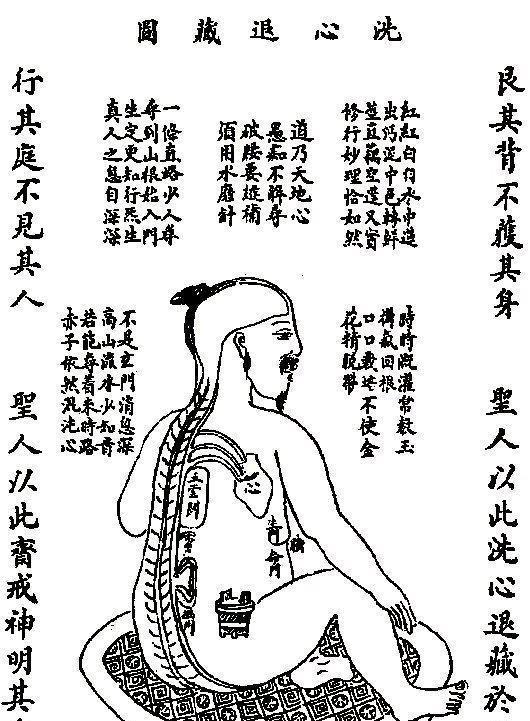 洗心退藏圖
艮其背不獲其身
聖人以此洗心退藏於
紅紅白白水中蓮
出污泥中色轉鮮
莖直藕空蓬又實
修行妙理恰如然
道乃天地心
愚痴不解尋
破腰要補
須用水磨針
一條直路少人尋
尋到山根始入門
坐定更知行炁主
真人之息自深深
行其庭不見其人
聖人以此齋戒神明其
時時溉灌常教玉
樹氣回根
不使金
花精脫蒂
不是玄門消息深
高山流水少知音
若能尋着來時路
赤子依然混沌心
心